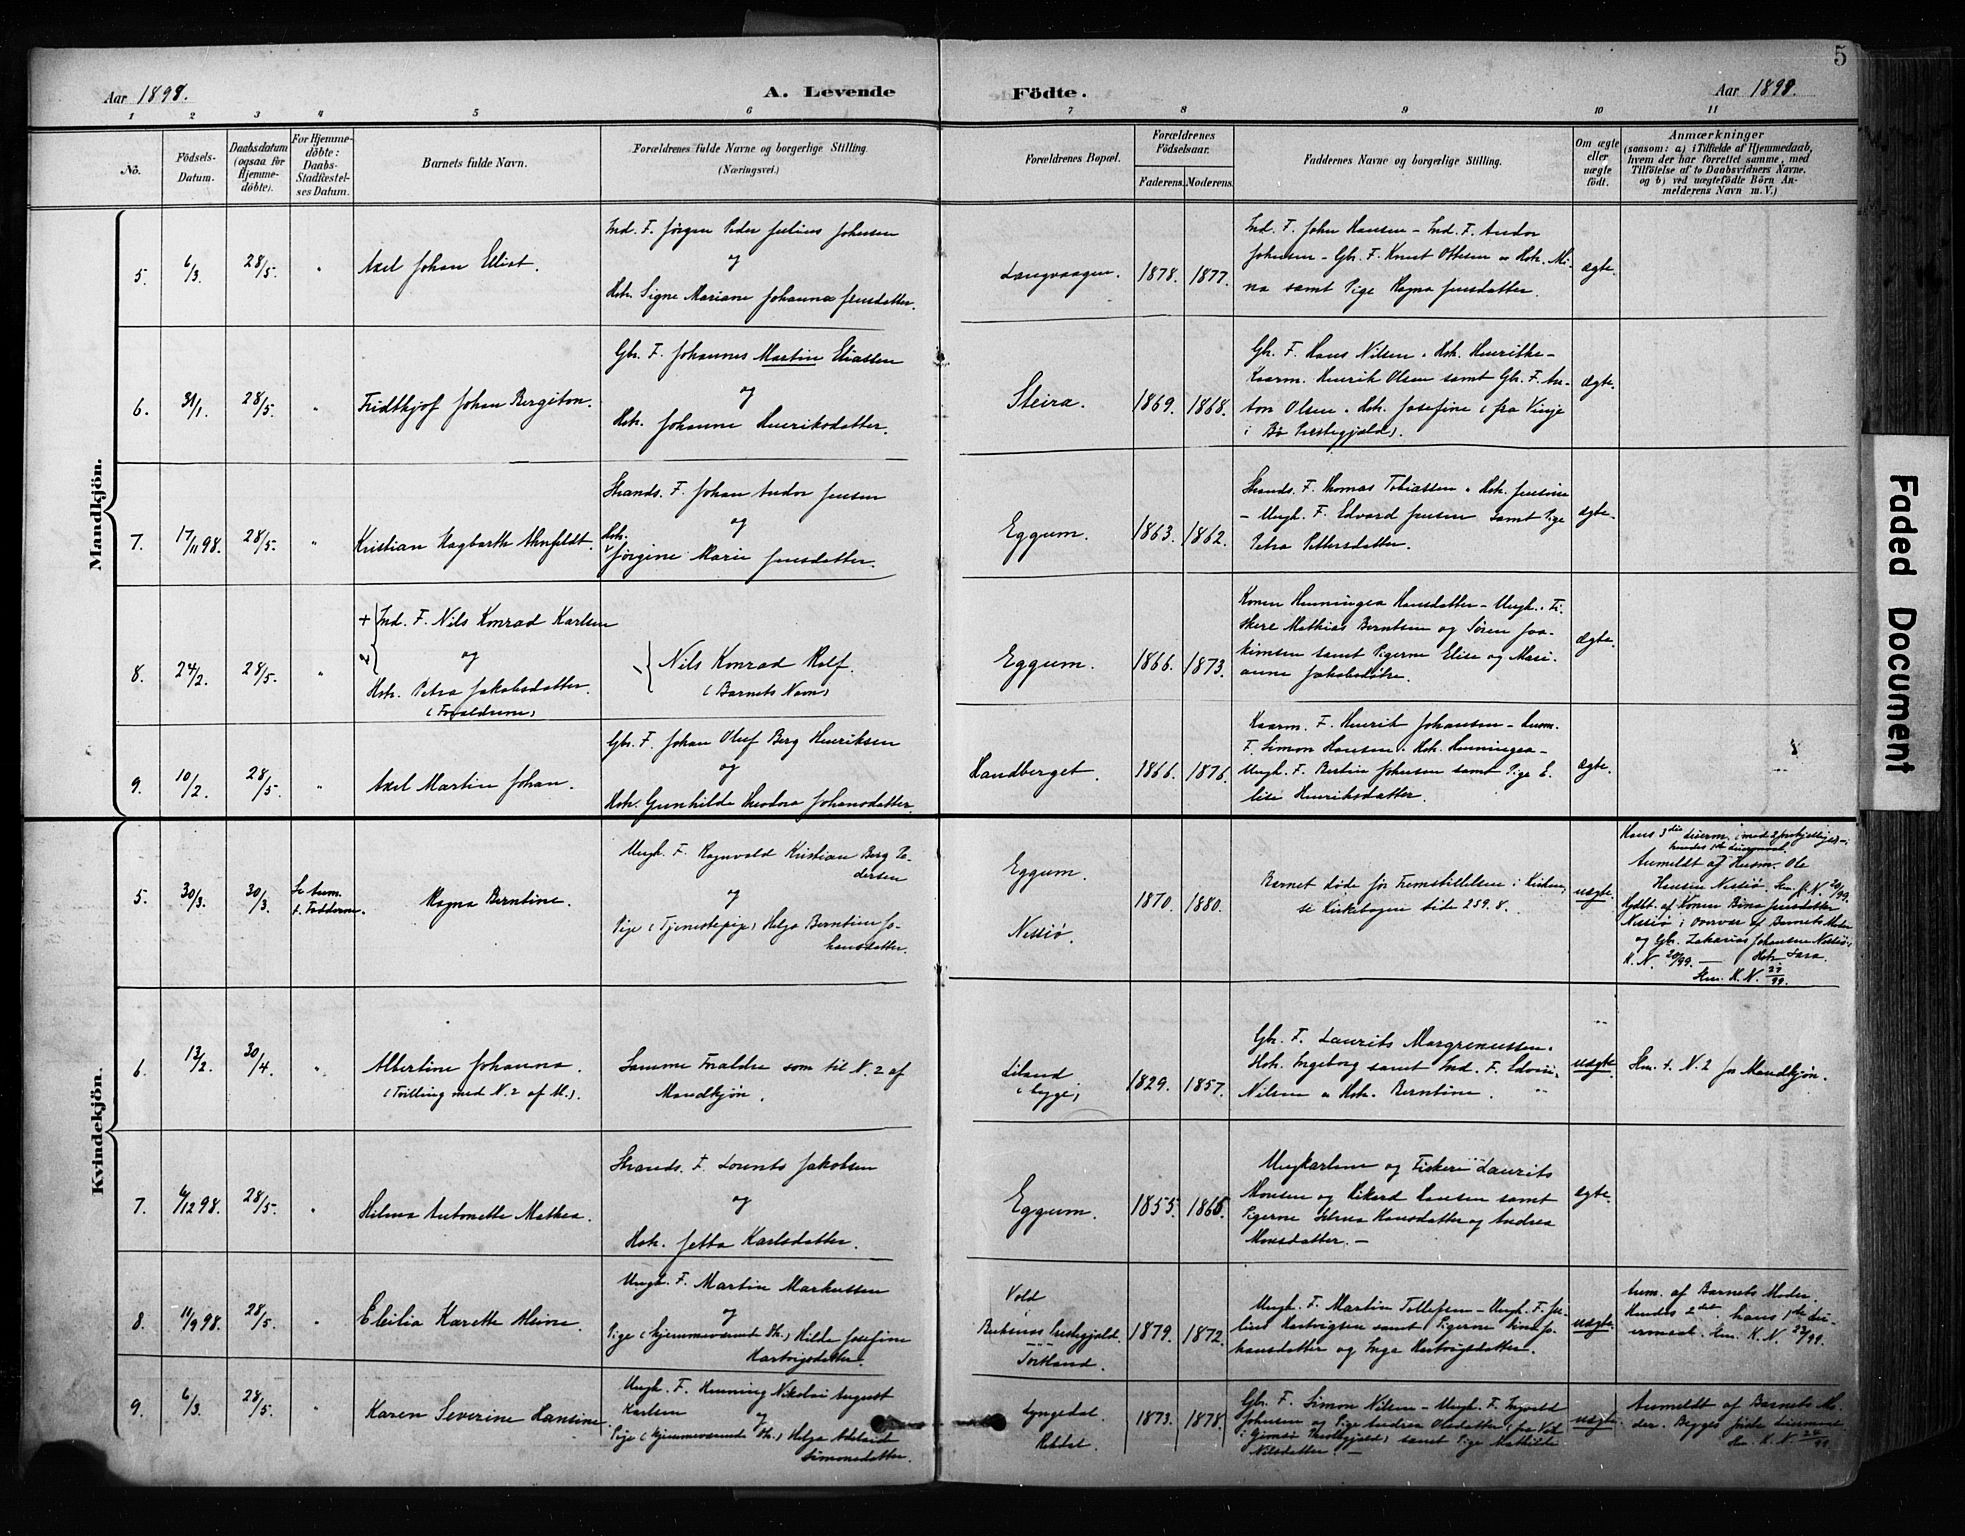 5
Aar 1898.
A. Levende
Födte.
Aar 1898.
1 2 3 4 5 6 7 8 9 10 11
No.
Födsels-
Datum.
Daabsdatum
(ogsaa for
Hjemme-
döbte).
For Hjemme-
döbte:
Daabs-
Stadfæstel-
ses Datum.
Barnets fulde Navn.
Forældrenes fulde Navne og borgerlige Stilling.
(Næringsvei.)
Forældrenes Bopæl.
Forældrenes
Födselsaar.
Faderens.
Moderens.
Faddernes Navne og borgerlige Stilling.
Om ægte
eller
uægte
födt.
Anmærkninger
(saasom: a) i Tilfælde af Hjemmedaab,
hvem der har forrettet samme, med
Tilföielse af to Daabsvidners Navne.
og b) ved uægtefödte Börn An-
melderens Navn m. V.)
Mandkjön.
5.
6/3.
28/5.
"
Axel Johan Elliot.
Ind. F. Jørgen Peder Julius Johnsen
og
Hstr. Signe Mariane Johanna Jensdatter.
Langvaagen.
1878.
1877.
Ind. F. John Hansen – Ind. F. Andor
Johnsen – Gbr. F. Knut Ottesen og Hstr. Mi-
na samt Pige Ragna Jensdatter.
ægte.
6.
31/1.
28/5.
"
Fridthjof Johan Bergiton.
Gbr. F. Johannes Martin Eliassen
og
Hstr. Johanne Henriksdatter.
Steira.
1869.
1868.
Gbr. F. Hans Nilsen. Hstr. Henrikke –
Kaarm. Henrik Olsen samt Gbr. F. An-
ton Olsen. Hstr. Josefine (fra Vinje
i Bø Præstegjeld).
ægte.
7.
17/11 98.
28/5.
"
Kristian Hagbarth Arnfeldt.
Strands. F. Johan Andor Jensen
og
Hstr.
Jørgine Marie Jensdatter.
Eggum.
1863.
1862.
Strands. F. Thomas Tobiassen. Hstr. Jensine
– Ungk. F. Edvard Jensen samt Pige
Petra Pettersdatter.
ægte.
8.
24/2.
28/5.
"
+ Ind. F. Nils Konrad Karlsen
og
2
Hstr. Petra Jakobsdatter.
(Forældrene)
1
Nils Konrad Rolf.
(Barnets Navn)
Eggum.
1866.
1873.
Konen Henningea Hansdatter – Ungk. Fi-
skere Mathias Berntsen og Søren Joa-
kimsen samt Pigerne Elise og Mari-
anne Jakobsdøtre.
ægte.
9.
10/2.
28/5.
"
Axel Martin Johan.
Gbr. F. Johan Oluf Berg Henriksen
og
Hstr. Gunhilde Theodora Johansdatter
Sandberget.
1866.
1876.
Kaarm. F. Henrik Johansen – Husm.
F. Simon Hansen. Hstr. Henningea –
Ungk. F. Bertin Johnsen samt Pige E-
lise Henriksdatter.
ægte.
8
Kvindekjön.
5.
30/3.
30/3.
Se Anm.
f. Fadderne.
Magna Berntine.
Ungk. F. Ragnvald Kristian Berg Pe-
dersen
og
Pige (Tjenestepige) Helga Berntine Jo-
hansdatter.
Eggum.
Nessiø.
1870.
1880.
Barnet døde før Fremstillelsen i Kirken,
se Kirkebogen side 259.8.
uægte.
Hans 3die leierm.
hendes 1ste leiermaal.
Anmeldt af Husm. Ole
Hansen Nessiø.
Hjdbt. af Konen Jensdatter
Nessiø i Overvær af Barnets Moder
og Gbr. Zakarias Johansen Nessiø,
K. N. 20/99. – Hstr. Sara.
Hm. K. N. 21/99.
6.
13/2.
30/4.
"
Albertine Johanna.
(Tvilling med N. 2 af M.).
Samme Forældre som til N. 2 af
Mandkjøn.
Liland
1829.
1857.
Gbr. F. Laurits Margrenussen.
Hstr. Ingeborg samt Ind. F. Edvin
Nilsen og Hstr. Berntine.
uægte
Hm. t. N. 2 for Mandkjøn.
7.
6/12 98.
28/5.
"
Hilma Antonette Mathea.
Strands. F. Lorents Jakobsen
og
Hstr. Jetta Karlsdatter.
Eggum.
1855.
1866.
Ungkarlene og Fiskere Laurits
Monsen og Rikard Hansen samt
Pigerne Hansdatter og Andrea
Monsdatter. –
ægte.
8.
11/9 98.
28/5.
"
Karette Meine.
Ungk. F. Martin Markussen
og
Pige (hjemmeværende Str.) Hilda Josefine
Hartvigsdatter.
Vold
i
Buksnæs Præstegjeld.
Tortland.
1879.
1872.
Ungk. F. Martin Tollefsen – Ungk. F. Ju-
lius Hartvigsen samt Pigerne Lina Jo-
hansdatter og Inga Hartvigsdatter.
uægte
Anm. af Barnets Moder.
Hendes 2det hans 1ste lei-
ermaal. Hm. K. N 23/99.
9.
6/3.
28/5.
"
Karen Severine Hansine
Ungk. F. Henning Nikolai August
Karlsen og
Pige (hjemmeværende Str.) Helga Adelaide
Simonsdatter.
Lyngedal.
1873.
1878.
Gbr. F. Simon Nilsen – Ungk. F. Ingvald
Johnsen og Pige Andrea Olsdatter (fra
i Gimsø Præstegjeld) samt Pige Mathilde
Nilsdatter. –
uægte
Anmeldt af Barnets Mo-
der. Begges første leiermaal.
Hm. K. N 24/99
Faded Document